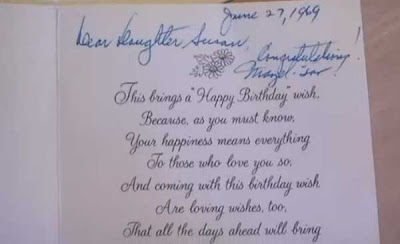 June 27, 1969
Dear Daughter, Susan,
Congratulations!
Mazel-Tov
This brings a "Happy Birthday" wish,
Because, as you must know,
Your happiness means everything
To those who love you so;
And coming with this birthday wish
Are loving wishes, too,
That all the days ahead will bring